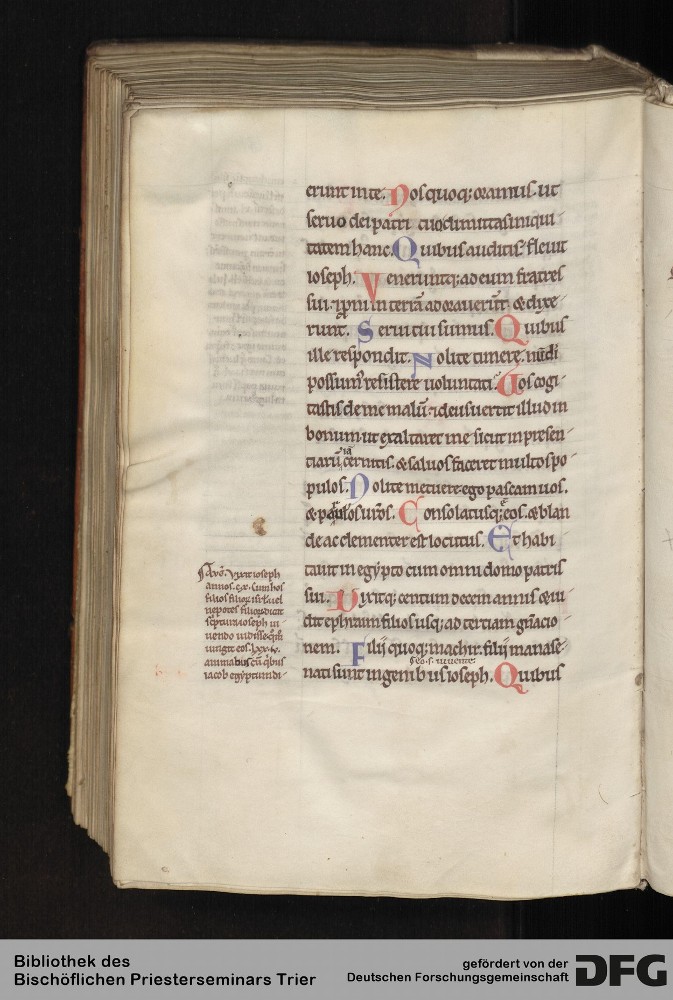 erunt in te. Nos quoq; oramus. ut
seruo dei patri tuo dimittas iniqui
tatem hanc. Quibus auditis fleuit
ioseph. Veneruntq; ad eum fratres
sui. ⁊ proni in terrā adorauerūt. & dixe
runt. Serui tui sumus. Quibus
ille respondit. Nolite timere. nū di
possum' resistere uoluntati. Vos cogi
tastis de me malū. ⁊ deus uertit illud in
bonum ut exaltaret me sicut in presen
tiarū cernitis. & saluos faceret multos po
pulos. Nolite metuere. ego pascam uos.
& paruulos uros. Consolatusq; eos. & blan
de ac clementer est locutus. Et habi
tauit in egypto cum omni domo patris
sui. Vixitq; centum decem annis & ui
dit ephraim filios usq; ad tertiam gnacio
nem. Filij quoq; machir. filij manasse
nati sunt in genibus ioseph. Quibus
uiuente
Vixit ioseph
annos. cx.
ioseph
animabus
iacob egyptum
Bibliothek des
Bischöflichen Priesterseminars Trier
gefördert von der
Deutschen Forschungsgemeinschaft
DFG